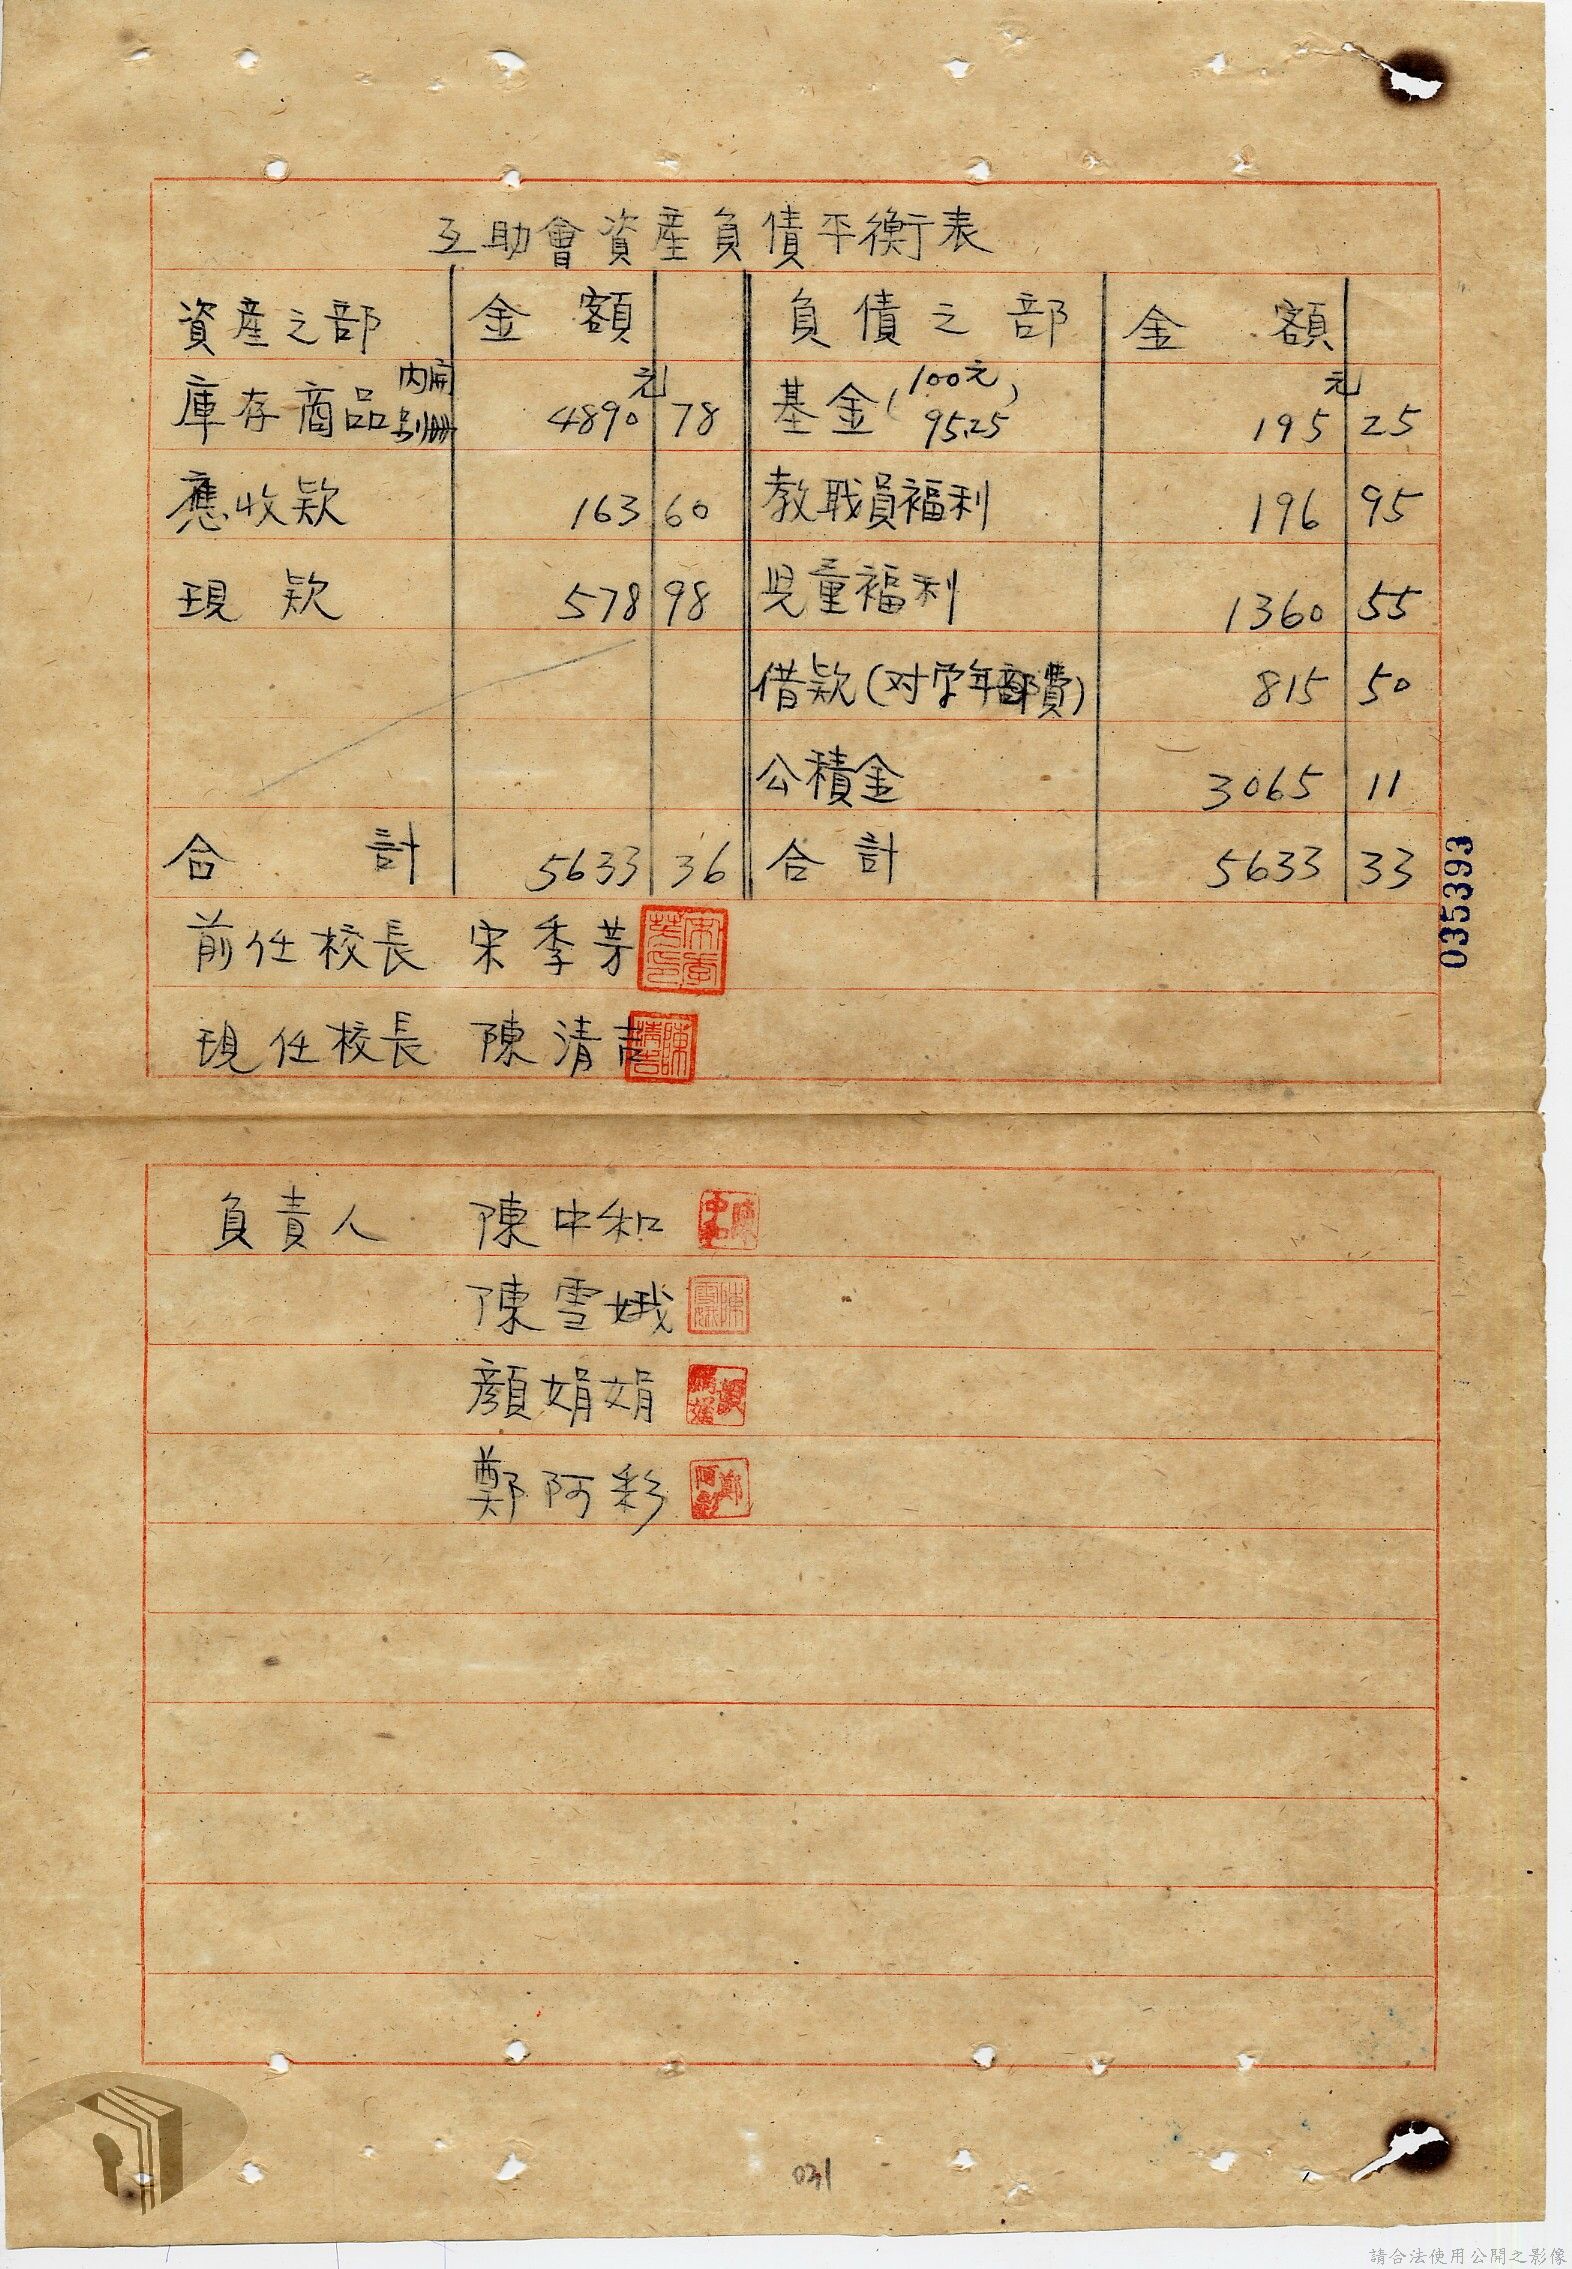 互助會資產負債平衡表
資產之部 金額 負債之部 金額
庫存商品 內開別冊 4890元78 基金(100元 95.25) 195元25
應收欵 163 60 教職員福利 196 95
現欵 578 98 児童福利 1360 55
借欵(对学年部費) 815 50
公積金 3065 11
合計 5633 36 合計 5633 33
前任校長 宋季芳
現任校長 陳清吉
035393
負責人 陳中和
陳雪娥
顏娟娟
鄭阿彩
031
請合法使用公開之影像